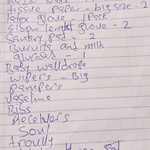 Tissue Paper - big size - 2
latex glove - 1 Pack
Elbow lenght glove - 2
Santary Pad - 2
and milk
glucose - 1
Baby walldrope
wipers - Big
Pampers
Vaseline
Bibs
Receivers
Soul